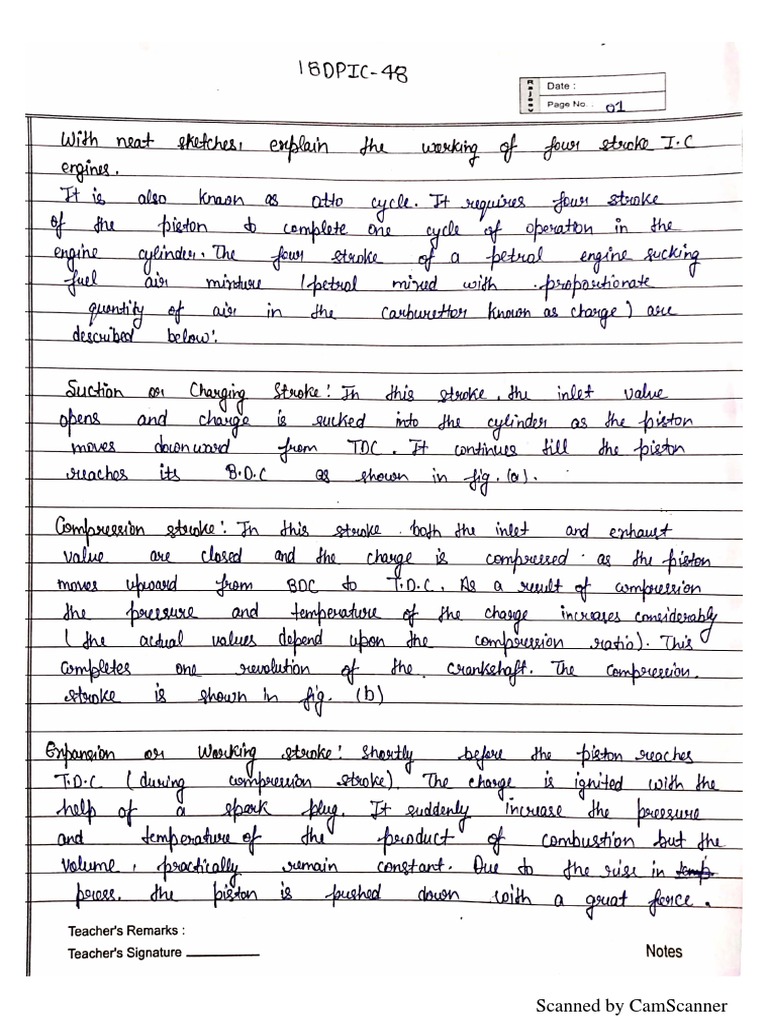 18DPIC-48
Rajeev
Date :
Page No. : 01
With neat sketches, explain the working of four stroke I.C
engines.
It is also known as otto cycle. It requires four stroke
of the piston to complete one cycle of operation in the
engine cylinder. The four stroke of a petrol engine sucking
fuel air mixture (petrol mixed with proportionate
quantity of air in the carburettor known as charge) are
described below:
Suction or Charging Stroke: In this stroke, the inlet value
opens and charge is sucked into the cylinder as the piston
moves downward from TDC. It continues till the piston
reaches its B.D.C as shown in fig. (a).
Compression stroke: In this stroke both the inlet and exhaust
value are closed and the charge is compressed as the piston
moves upward from BDC to T.D.C. As a result of compression
the pressure and temperature of the charge increases considerably
(the actual values depend upon the compression ratio). This
completes one revolution of the crankshaft. The compression
stroke is shown in fig. (b)
Expansion or Working stroke: Shortly before the piston reaches
T.D.C (during compression stroke). The charge is ignited with the
help of a spark plug. It suddenly increase the pressure
and temperature of the product of combustion but the
volume, practically remain constant. Due to the rise in temp
press. the piston is pushed down with a great force.
Teacher's Remarks :
Teacher's Signature
Notes
Scanned by CamScanner